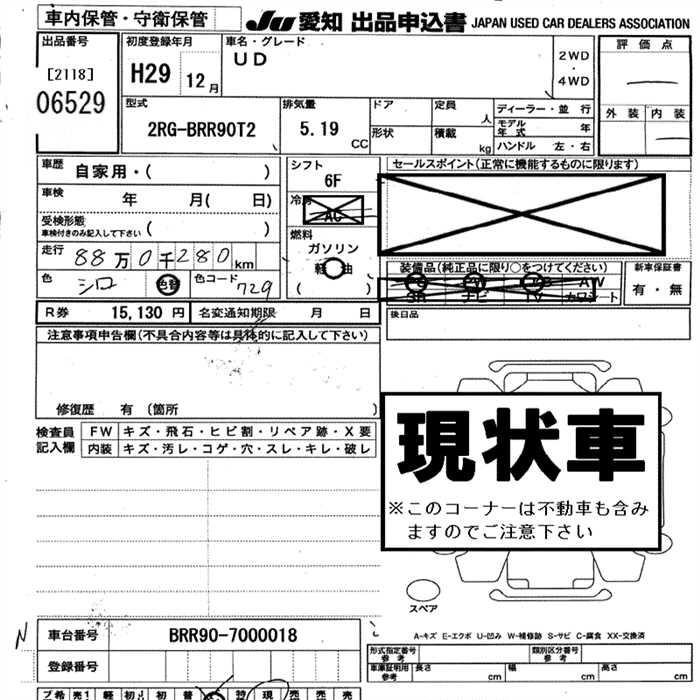 車内保管・守衛保管
JU 愛知 出品申込書 JAPAN USED CAR DEALERS ASSOCIATION
出品番号
[2118]
06529
初度登録年月
H29 12月
車名・グレード
UD
2WD
・
4WD
評価点
外装 内装
型式
2RG-BRR90T2
排気量
5.19 CC
ドア
形状
定員 人
積載 kg
ディーラー・並行
モデル年式 年
ハンドル 左・右
車歴 自家用・( )
車検 年 月( 日)
受検形態
車検付きのみ記入して下さい ( )
走行 88万0千280km
色 シロ 色替 色コード 729
シフト
6F
冷房
AC
燃料
ガソリン
軽油
( )
セールスポイント(正常に機能するものに限ります)
装備品(純正品に限り○をつけてください)
AW
SR ナビ TV カワシート
新車保証書
有・無
R券 15,130円 名変通知期限 月 日
後日品
注意事項申告欄(不具合内容等は具体的に記入して下さい)
修復歴 有 (箇所 )
検査員記入欄
FW キズ・飛石・ヒビ割・リペア跡・X要
内装 キズ・汚レ・コゲ・穴・スレ・キレ・破レ
現状車
※このコーナーは不動車も含み
ますのでご注意下さい
スペア
A-キズ E-エクボ U-凹み W-補修跡 S-サビ C-腐食 XX-交換済
N
車台番号 BRR90-7000018
登録番号
形式指定番号
参考
類別区分番号
参考
車庫証明用
参考
長さ cm 幅 cm 高さ cm